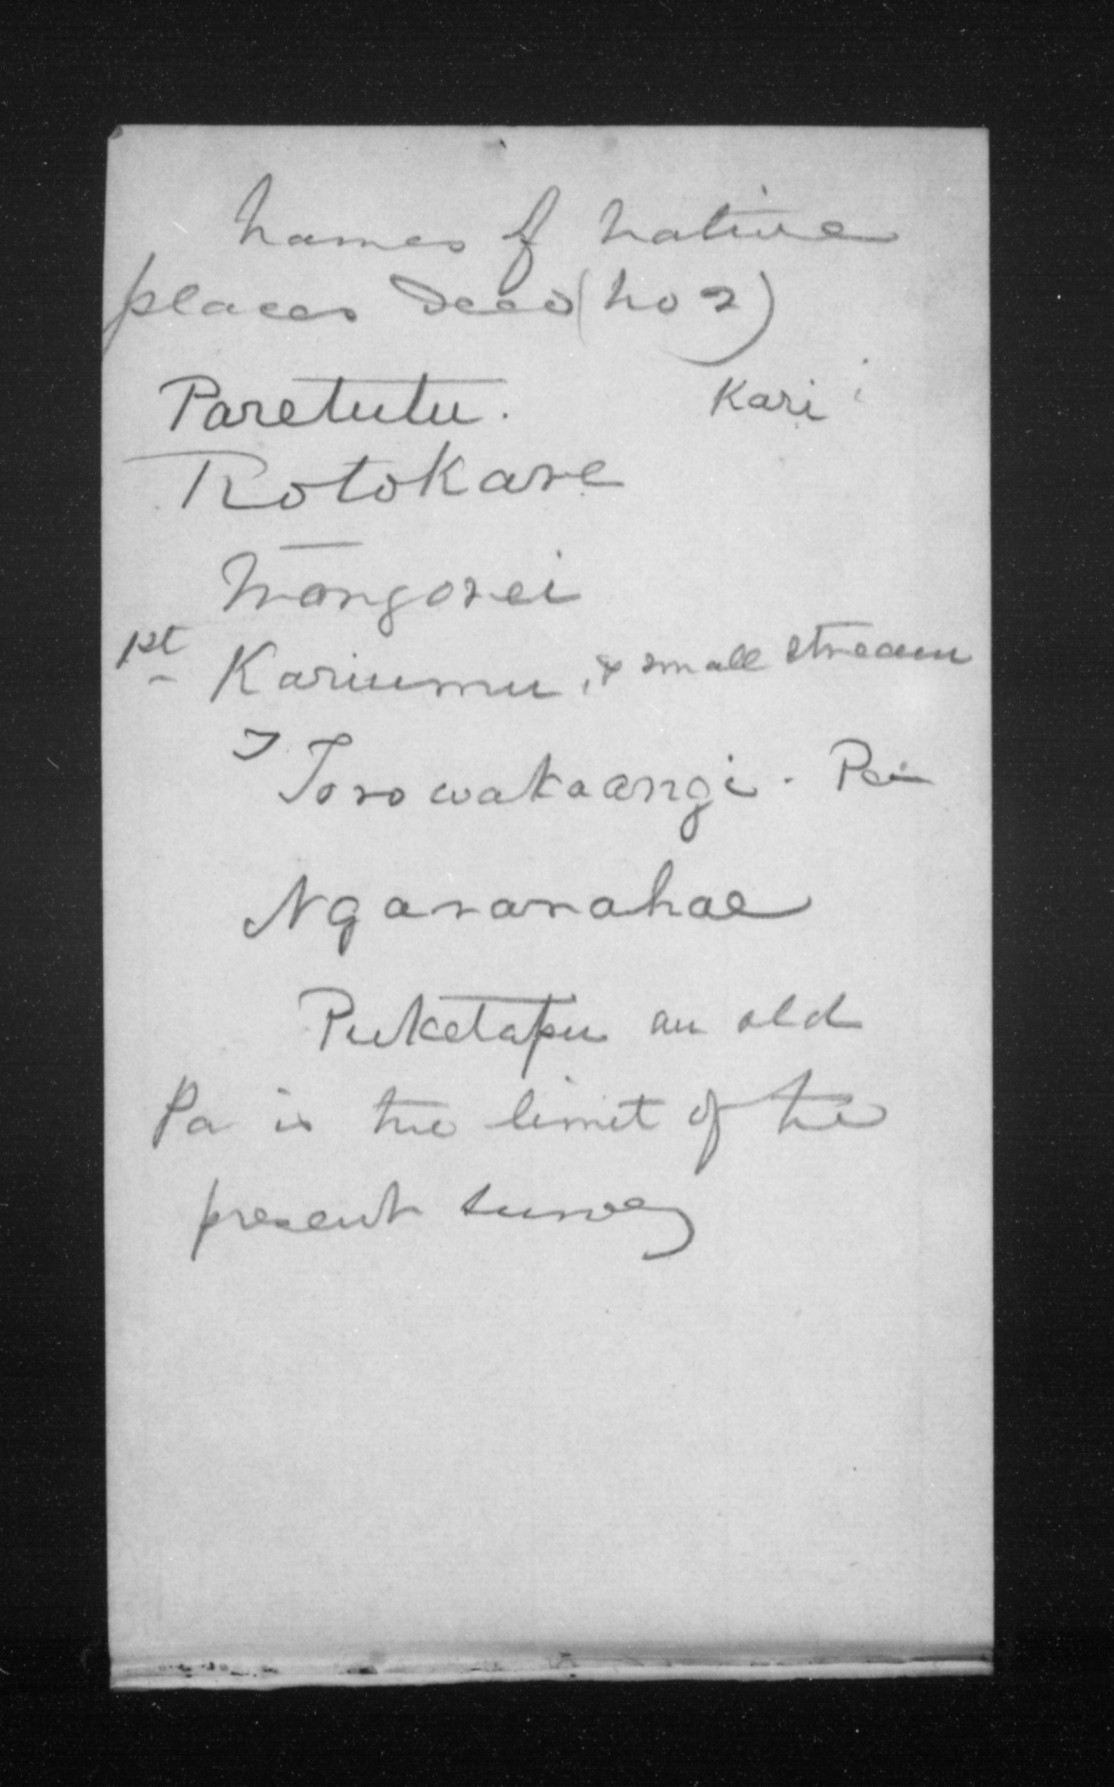 Names of Native
places Deed (No 2)
Paretutu. Kari
Rotokare
Wangorei
1st Kariumu, a small stream
Torowataangi. Pa
Ngararahae
Puketapu an old
Pa is the limit of the
present survey